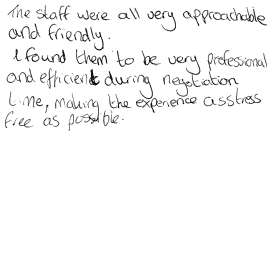 The staff were all very approachable
and friendly.
I found them to be very professional
and efficient during negotiation
time, making the experience as stress
free as possible.